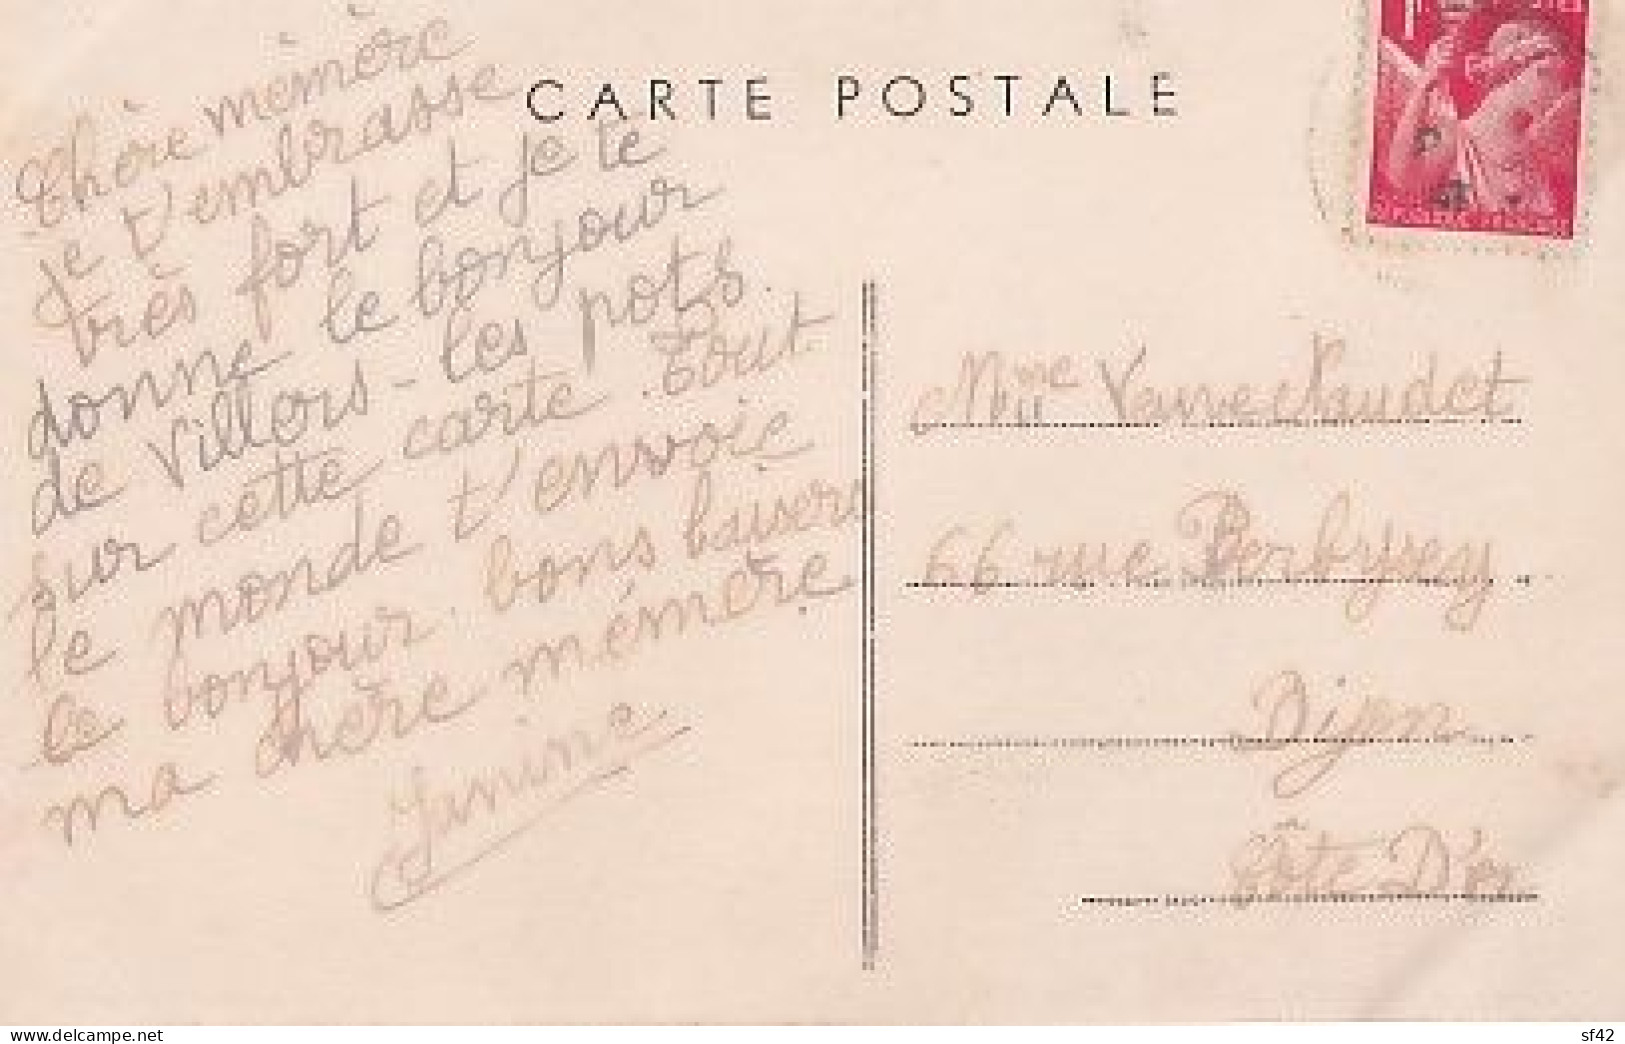 CARTE POSTALE
Chère mémère
je t'embrasse
très fort et je te
donne le bonjour
de Villers-les pots
sur cette carte. Tout
le monde t'envoie
le bonjour. bons baisers
ma chère mémère
Janine
Mme Veuve Naudet
66 rue Berbisey
Dijon
Côte D'or
delcampe.net
sf42